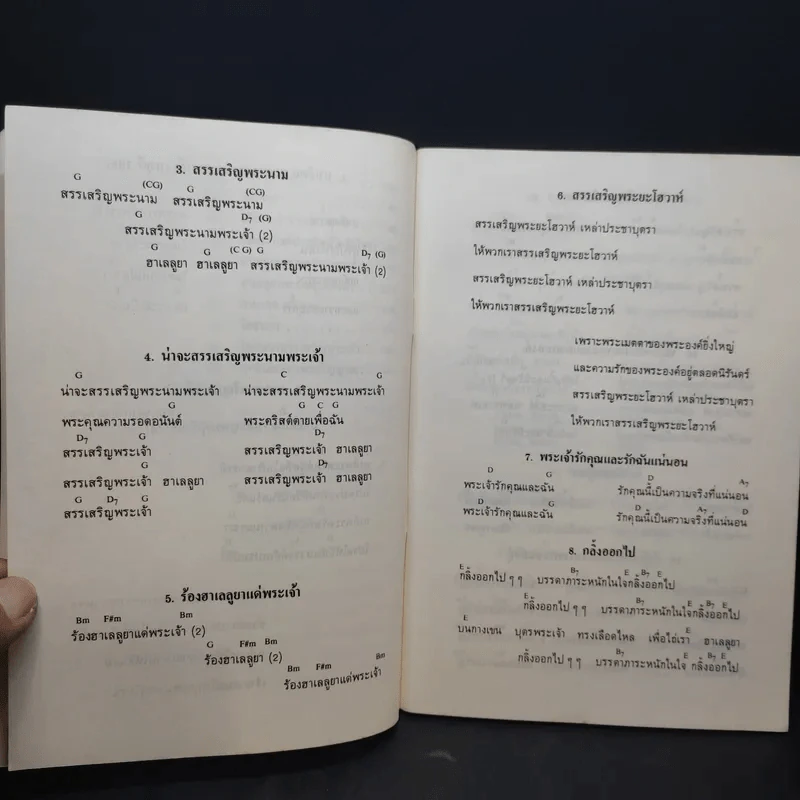 3. สรรเสริญพระนาม
G (CG) G (CG)
สรรเสริญพระนาม สรรเสริญพระนาม
G D7 (G)
สรรเสริญพระนามพระเจ้า (2)
G G (C G) G D7 (G)
ฮาเลลูยา ฮาเลลูยา สรรเสริญพระนามพระเจ้า (2)
4. น่าจะสรรเสริญพระนามพระเจ้า
G C G
น่าจะสรรเสริญพระนามพระเจ้า น่าจะสรรเสริญพระนามพระเจ้า
G G C G
พระคุณความรอดอนันต์ พระคริสต์ตายเพื่อฉัน
D7 G D7
สรรเสริญพระเจ้า สรรเสริญพระเจ้า ฮาเลลูยา
G D7
สรรเสริญพระเจ้า ฮาเลลูยา สรรเสริญพระเจ้า ฮาเลลูยา
G D7 G
สรรเสริญพระเจ้า
5. ร้องฮาเลลูยาแด่พระเจ้า
Bm F#m Bm
ร้องฮาเลลูยาแด่พระเจ้า (2)
G F#m Bm
ร้องฮาเลลูยา (2)
Bm F#m Bm
ร้องฮาเลลูยาแด่พระเจ้า
6. สรรเสริญพระยะโฮวาห์
สรรเสริญพระยะโฮวาห์ เหล่าประชาบุตรา
ให้พวกเราสรรเสริญพระยะโฮวาห์
สรรเสริญพระยะโฮวาห์ เหล่าประชาบุตรา
ให้พวกเราสรรเสริญพระยะโฮวาห์
เพราะพระเมตตาของพระองค์ยิ่งใหญ่
และความรักของพระองค์อยู่ตลอดนิรันดร์
สรรเสริญพระยะโฮวาห์ เหล่าประชาบุตรา
ให้พวกเราสรรเสริญพระยะโฮวาห์
7. พระเจ้ารักคุณและรักฉันแน่นอน
D G D A7
พระเจ้ารักคุณและฉัน รักคุณนี้เป็นความจริงที่แน่นอน
D G D A7 D
พระเจ้ารักคุณและฉัน รักคุณนี้เป็นความจริงที่แน่นอน
8. กลิ้งออกไป
E B7 E B7 E
กลิ้งออกไป ๆ ๆ บรรดาภาระหนักในใจกลิ้งออกไป
E B7 E B7 E
กลิ้งออกไป ๆ ๆ บรรดาภาระหนักในใจกลิ้งออกไป
E B7 E
บนกางเขน บุตรพระเจ้า ทรงเลือดไหล เพื่อไถ่เรา ฮาเลลูยา
B7 E B7 E
กลิ้งออกไป ๆ ๆ บรรดาภาระหนักในใจ กลิ้งออกไป